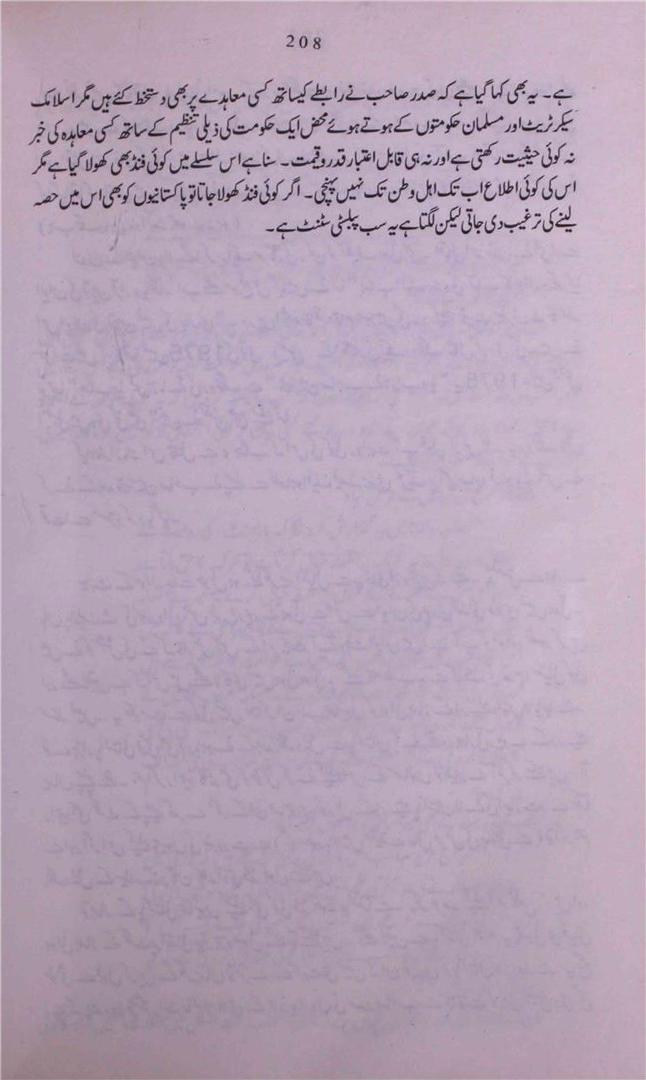 208
ہے۔ یہ بھی کہا گیا ہے کہ صدر صاحب نے رابطے کیساتھ کسی معاہدے پر بھی دستخط کئے ہیں مگر اسلامک
سیکرٹریٹ اور مسلمان حکومتوں کے ہوتے ہوئے محض ایک حکومت کی ذیلی تنظیم کے ساتھ کسی معاہدہ کی خبر
نہ کوئی حیثیت رکھتی ہے اور نہ ہی قابل اعتبار قدر و قیمت۔ سنا ہے اس سلسلے میں کوئی فنڈ بھی کھولا گیا ہے مگر
اس کی کوئی اطلاع اب تک اہل وطن تک نہیں پہنچی۔ اگر کوئی فنڈ کھولا جاتا تو پاکستانیوں کو بھی اس میں حصہ
لینے کی ترغیب دی جاتی لیکن لگتا ہے یہ سب پبلسٹی سٹنٹ ہے۔